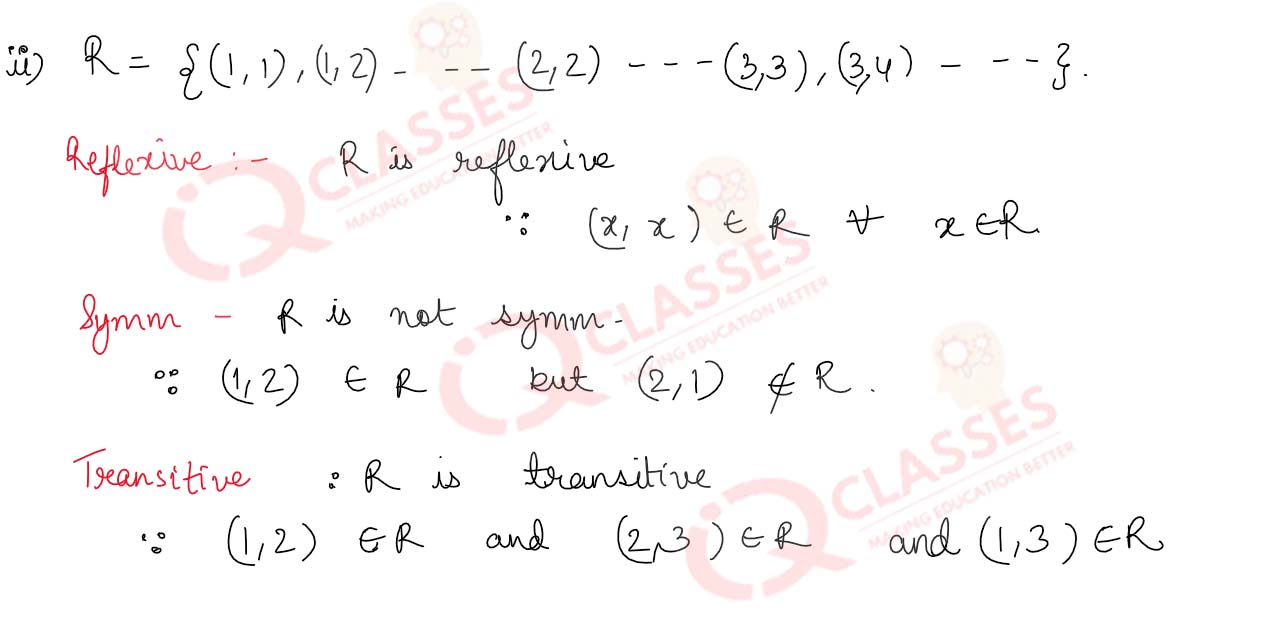 ii) R = {(1,1), (1,2) - -- (2,2) - - - (3,3), (3,4) - - - -}.
Reflexive :- R is reflexive
∵ (x, x) ∈ R ∀ x ∈ R
Symm - R is not symm-
∵ (1,2) ∈ R but (2,1) ∉ R.
Transitive : R is transitive
∵ (1,2) ∈ R and (2,3) ∈ R and (1,3) ∈ R
IQ CLASSES
MAKING EDUCATION BETTER
IQ CLASSES
MAKING EDUCATION BETTER
IQ CLASSES
MAKING EDUCATION BETTER